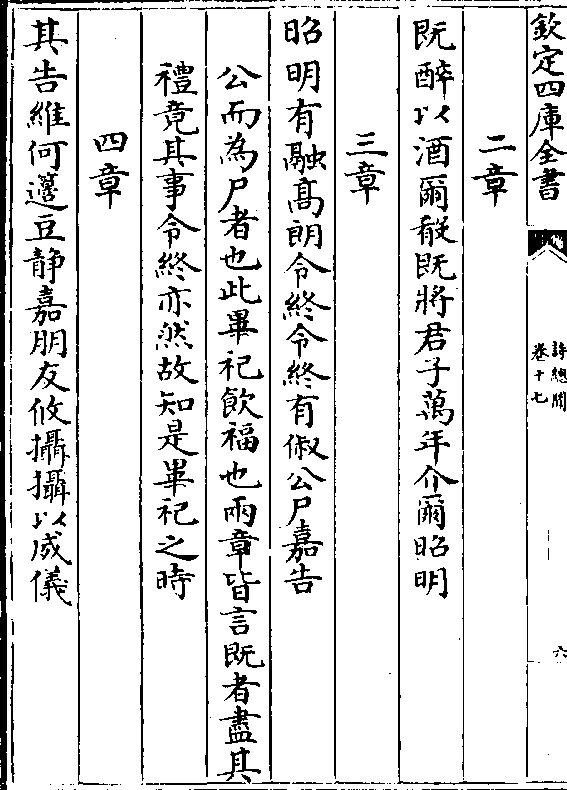 欽定四庫全書
詩總聞
卷十七
六
二章
既醉以酒爾殽既將君子萬年介爾昭明
三章
昭明有融髙朗令終令終有俶公尸嘉告
公而為尸者也此畢祀飲福也兩章皆言既者盡其
禮竟其事令終亦然故知是畢祀之時
四章
其告維何籩豆静嘉朋友攸攝攝以成儀